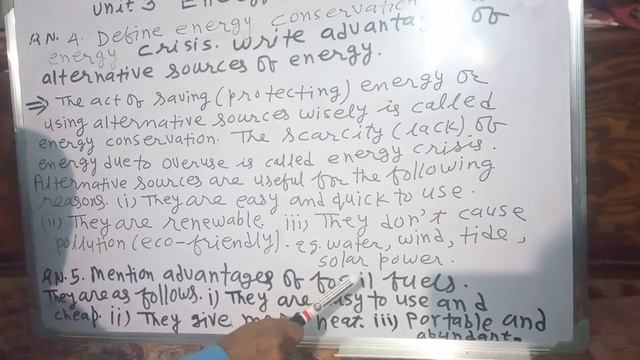 Unit 3
QN. 4. Define energy conservation
energy crisis. Write advanta of
alternative sources of energy.
⇒ The act of saving (protecting) energy or
using alternative sources wisely is called
energy conservation. The scarcity (lack) of
energy due to overuse is called energy crisis.
Alternative sources are useful for the following
reasons. (i) They are easy and quick to use.
(ii) They are renewable. iii) They don't cause
pollution (eco-friendly). eg. water, wind, tide,
solar power.
QN. 5. Mention advantages of fossil fuels.
They are as follows. i) They are easy to use and
cheap. ii) They give heat. iii) Portable and
abundant.